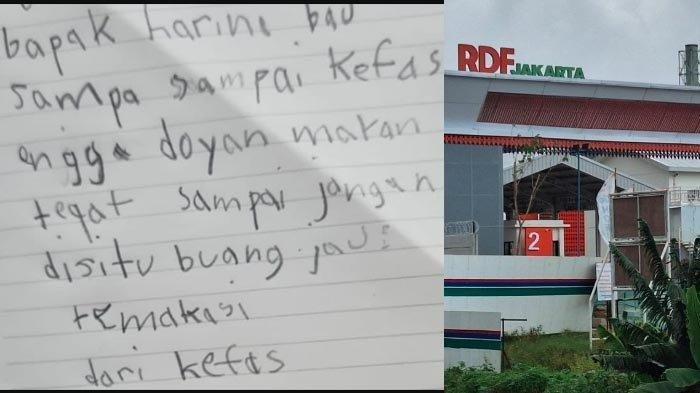 bapak harini bau
sampa sampai kefas
engga doyan makan
tegat sampai jangan
disitu buang jau:
temakasi
dari kefas
RDF JAKARTA
2